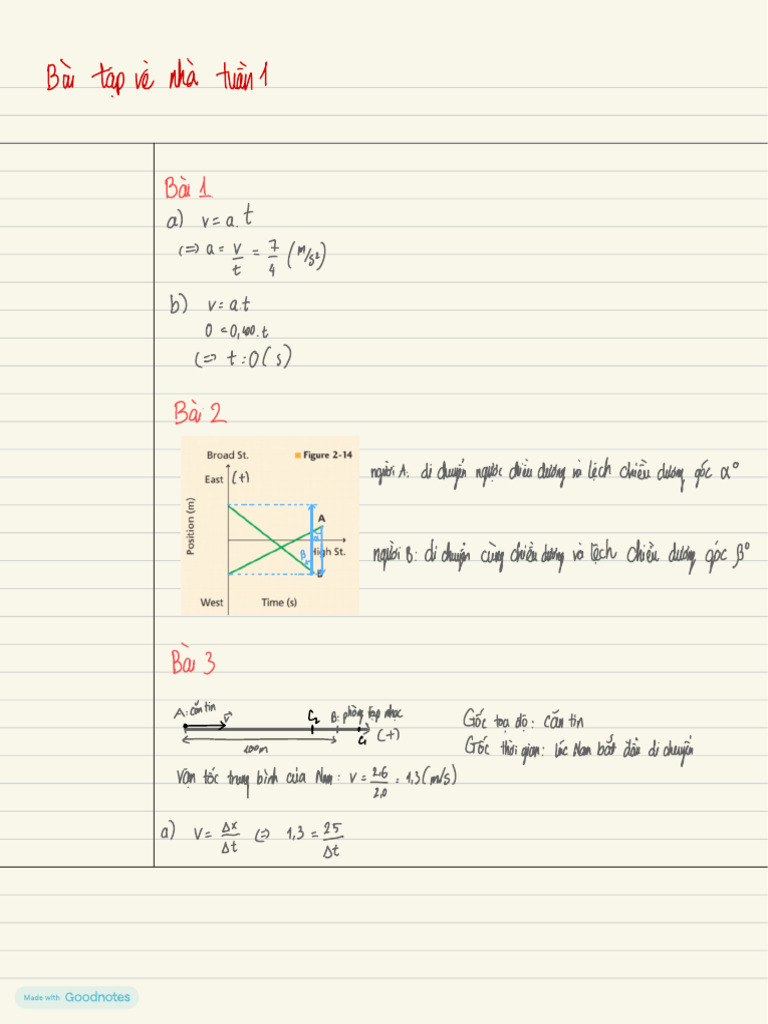 Bài tập về nhà tuần 1
Bài 1
a) v = a.t
(=) a = v/t = 7/4 (m/s²)
b) v = a.t
0 = 0,400.t
(=) t = 0 (s)
Bài 2
Broad St.
Figure 2-14
East (+)
Position (m)
A
α
β
High St.
B
West
Time (s)
người A: di chuyển ngược chiều dương và lệch chiều dương góc α°
người B: di chuyển cùng chiều dương và lệch chiều dương góc β°
Bài 3
A: căn tin
v
C₂
B: phòng tập nhạc
C₁
(+)
100m
Gốc toạ độ: căn tin
Gốc thời gian: lúc Nam bắt đầu di chuyển
Vận tốc trung bình của Nam: v = 2.6/2,0 = 1,3 (m/s)
a) v = Δx/Δt (=) 1,3 = 25/Δt
Made with Goodnotes